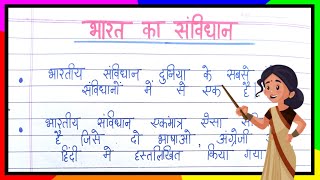 भारत का संविधान
भारतीय संविधान दुनिया के सबसे
संविधानों में से एक है
भारतीय संविधान एकमात्र ऐसा
है जिसे दो भाषाओं, अंग्रेजी
हिंदी में हस्तलिखित किया गया